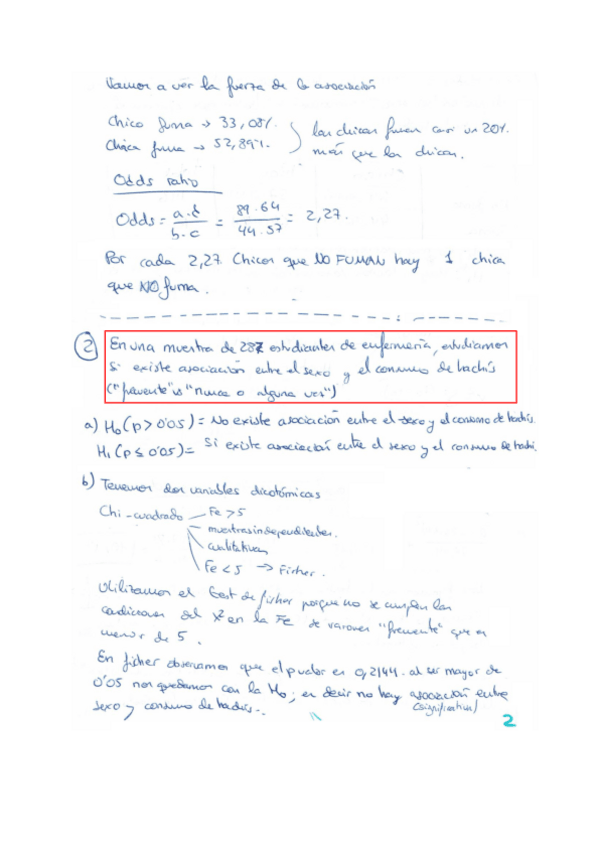 Vamos a ver la fuerza de la asociación
Chico fuma → 33,08%.
Chica fuma → 52,89%.
las chicas fuman casi un 20%
más que los chicos.
Odds ratio
Odds = a.d / b.c = 89.64 / 44.57 = 2,27.
Por cada 2,27 Chicos que NO FUMAN hay 1 chica
que NO fuma.
2 En una muestra de 287 estudiantes de enfermería, estudiamos
si existe asociación entre el sexo y el consumo de hachís
("frecuente" vs "nunca o alguna vez")
a) H₀ (p > 0'05) = No existe asociación entre el sexo y el consumo de hachís.
H₁ (p ≤ 0'05) = Si existe asociación entre el sexo y el consumo de hachí.
b) Tenemos dos variables dicotómicas
Chi-cuadrado Fe > 5
muestras independientes.
cualitativas
Fe < 5 → Fisher.
Utilizamos el test de fisher porque no se cumplen las
condiciones del X² en la Fe de varones "frecuente" que es
menor de 5.
En fisher observamos que el p valor es 0,2144. al ser mayor de
0'05 nos quedamos con la H₀; es decir no hay asociación entre
(significativa)
sexo y consumo de hachís.
2